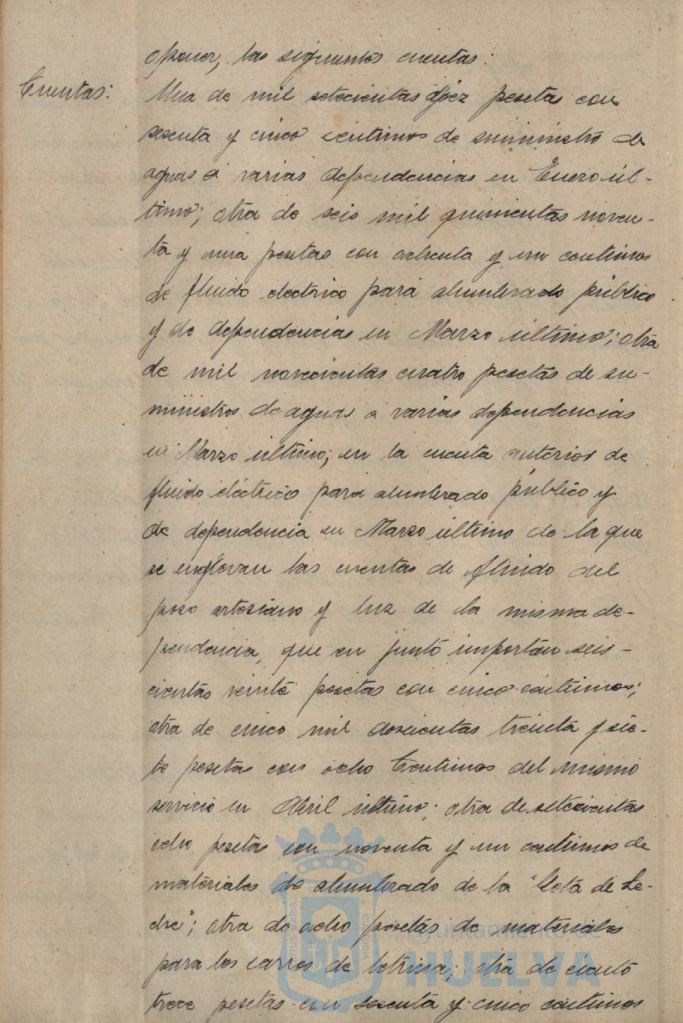 oponer, las siguientes cuentas:
Cuentas:
Una de mil setecientas diez peseta con
sesenta y cinco centimos de suministro de
aguas a varias dependencias en Enero úl-
timo; otra de seis mil quinientas noven-
ta y una pesetas con ochenta y un centimos
de fluido electrico para alumbrado público
y de dependencias en Marzo último; otra
de mil novecientas cuatro pesetas de su-
ministros de agua a varias dependencias
en Marzo último; en la cuenta anterior de
fluido eléctrico para alumbrado público y
de dependencia en Marzo último de la que
se engloban las cuentas de fluido del
pozo artesiano y luz de la misma de-
pendencia, que en junto importan seis-
cientas veinte pesetas con cinco centimos;
otra de cinco mil doscientas treinta y sie-
te pesetas con ocho centimos del mismo
servicio en Abril último; otra de setecientas
ocho pesetas con noventa y un centimos de
materiales de alumbrado de la "Gota de Le-
che"; otra de ocho pesetas de materiales
para los carros de letrina; otra de ciento
trece pesetas con sesenta y cinco centimos
Ayuntamiento de
HUELVA